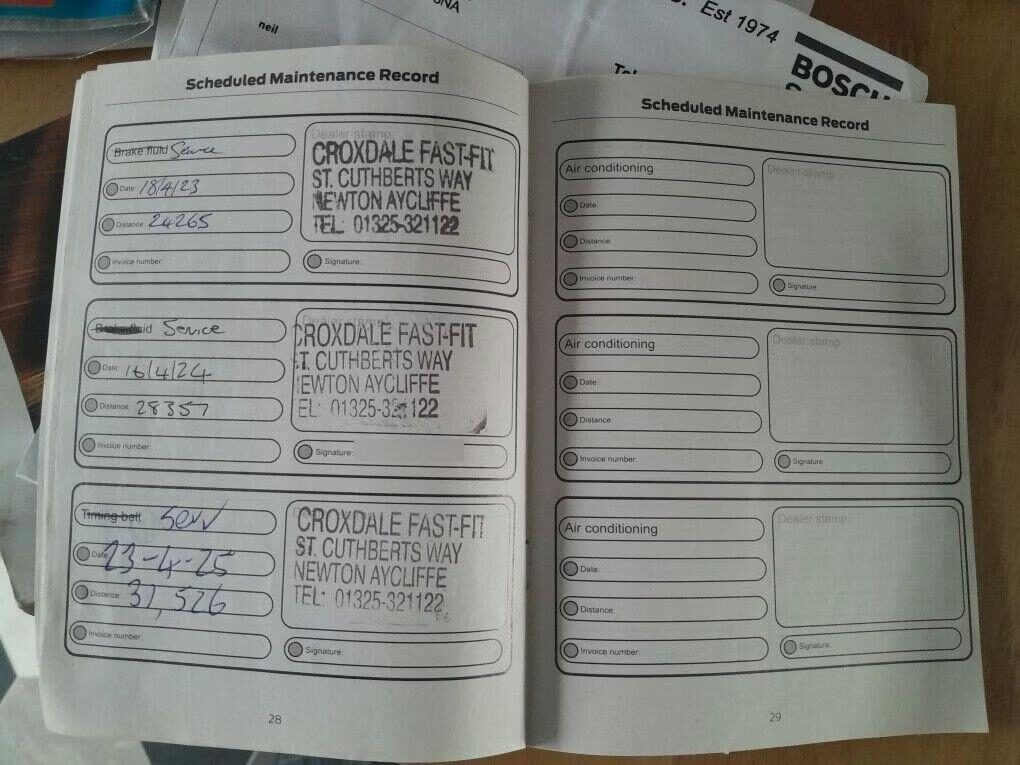 SNA
neil
S. Est 1974
Tel
BOSCH
Scheduled Maintenance Record
Brake fluid Service
Date: 18/4/23
Distance: 24265
Invoice number:
Dealer stamp
CROXDALE FAST-FIT
ST. CUTHBERTS WAY
NEWTON AYCLIFFE
TEL: 01325-321122
Signature:
Brake fluid Service
Date: 16/4/24
Distance: 28357
Invoice number:
Dealer stamp
CROXDALE FAST-FIT
T. CUTHBERTS WAY
EWTON AYCLIFFE
EL: 01325-321122
Signature:
Timing belt Serv
Date: 23-4-25
Distance: 31,526
Invoice number:
CROXDALE FAST-FIT
ST. CUTHBERTS WAY
NEWTON AYCLIFFE
TEL: 01325-321122
Signature:
28
Scheduled Maintenance Record
Air conditioning
Date:
Distance
Invoice number:
Dealer stamp
Signature:
Air conditioning
Date:
Distance:
Invoice number:
Dealer stamp
Signature
Air conditioning
Date:
Distance:
Invoice number:
Dealer stamp
Signature:
29